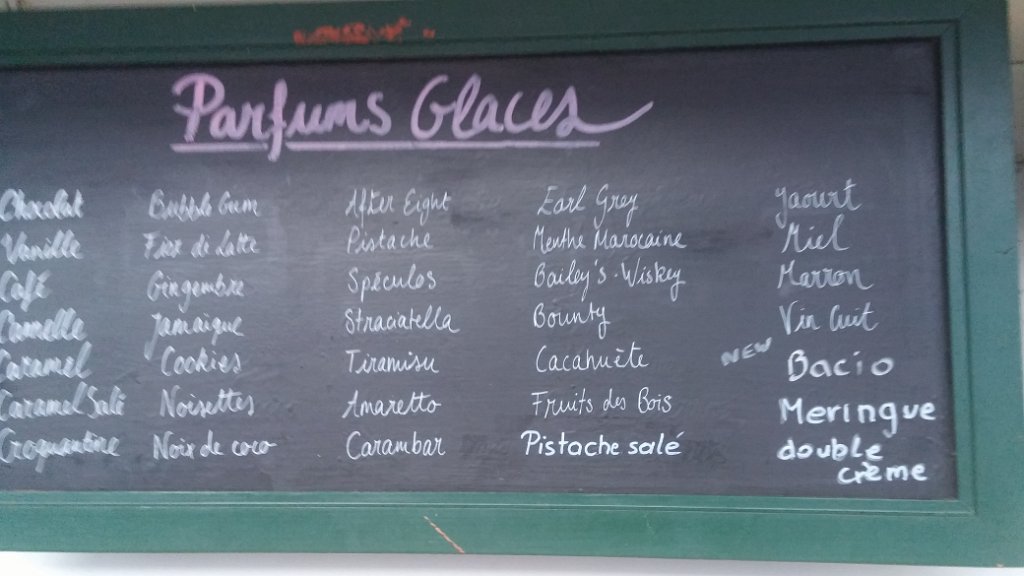 Parfums Glaces
Chocolat
Vanille
Café
Cannelle
Caramel
Caramel Salé
Croquantine
Bubble Gum
Fior di Latte
Gingembre
Jamaïque
Cookies
Noisettes
Noix de coco
After Eight
Pistache
Spéculos
Straciatella
Tiramisu
Amaretto
Carambar
Earl Grey
Menthe Marocaine
Bailey's-Wiskey
Bounty
Cacahuète
Fruits des Bois
Pistache salé
Yaourt
Miel
Marron
Vin Cuit
NEW Bacio
Meringue
double
crème